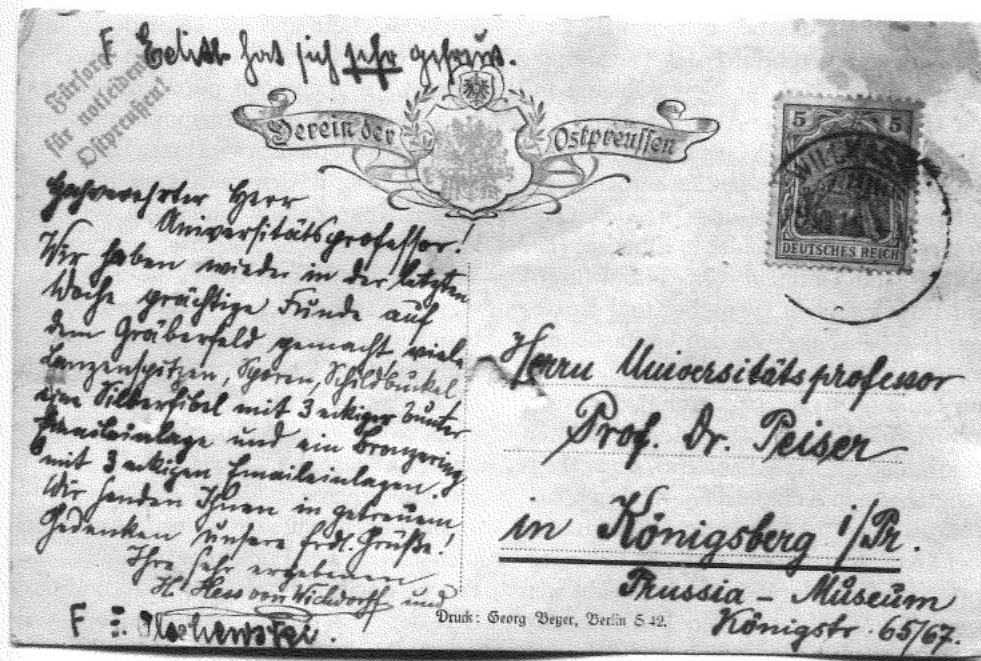 F Edith hat sich sehr gefreut.
Fürsorge
für notleidende
Ostpreußen!
Verein der Ostpreussen
Hochverehrter Herr
Universitätsprofessor!
Wir haben wieder in der letzten
Woche prächtige Funde auf
dem Gräberfeld gemacht, viele
Lanzenspitzen, Sporen, Schildbuckel
eine Silberfibel mit 3 eckiger bunter
Emaileinlage und ein Bronzering
mit 3 eckigen Emaileinlagen.
Wir senden Ihnen in getreuem
Gedenken unsere frdl. Grüße!
Ihre sehr ergebenen
H. Hess von Wichdorff und
F
5 5
DEUTSCHES REICH
Herrn Universitätsprofessor
Prof. Dr. Peiser
in Königsberg i/Pr.
Prussia - Museum
Königstr. 65/67.
Druck: Georg Beyer, Berlin S 42.